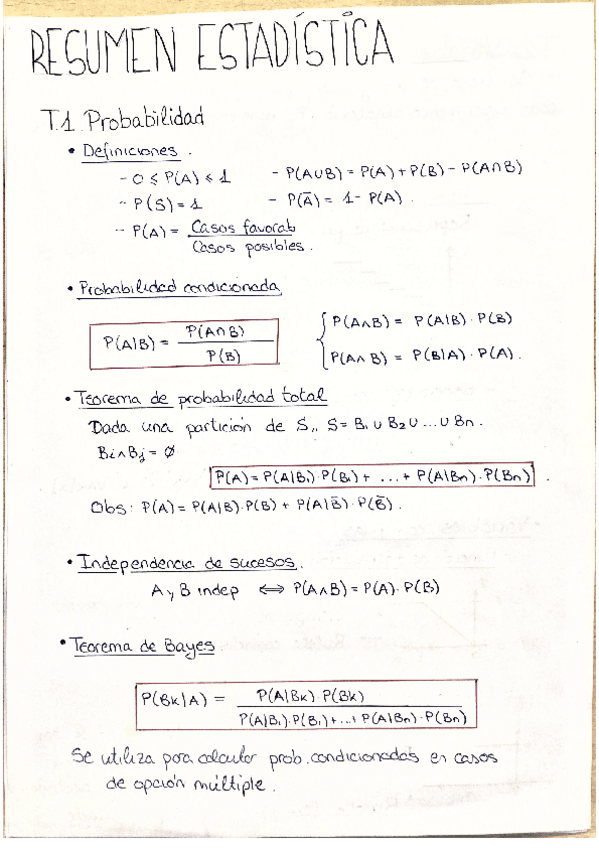 RESUMEN ESTADÍSTICA
T.1 Probabilidad
• Definiciones.
- 0 ≤ P(A) ≤ 1
- P(A∪B) = P(A) + P(B) - P(A∩B)
- P(S) = 1
- P(Ā) = 1 - P(A).
- P(A) = Casos favorab / Casos posibles.
• Probabilidad condicionada
P(A|B) = P(A∩B) / P(B)
P(A∧B) = P(A|B) · P(B)
P(A∧B) = P(B|A) · P(A).
• Teorema de probabilidad total
Dada una partición de S,, S = B₁ ∪ B₂ ∪ ... ∪ Bn.
Bi∧Bj = ∅
P(A) = P(A|B₁) · P(B₁) + ... + P(A|Bn) · P(Bn).
Obs: P(A) = P(A|B) · P(B) + P(A|B̄) · P(B̄).
• Independencia de sucesos.
A y B indep ⟺ P(A∧B) = P(A) · P(B)
• Teorema de Bayes
P(Bk|A) = P(A|Bk) · P(Bk) / P(A|B₁) · P(B₁) + ... + P(A|Bn) · P(Bn)
Se utiliza para calcular prob. condicionadas en casos
de opción múltiple.